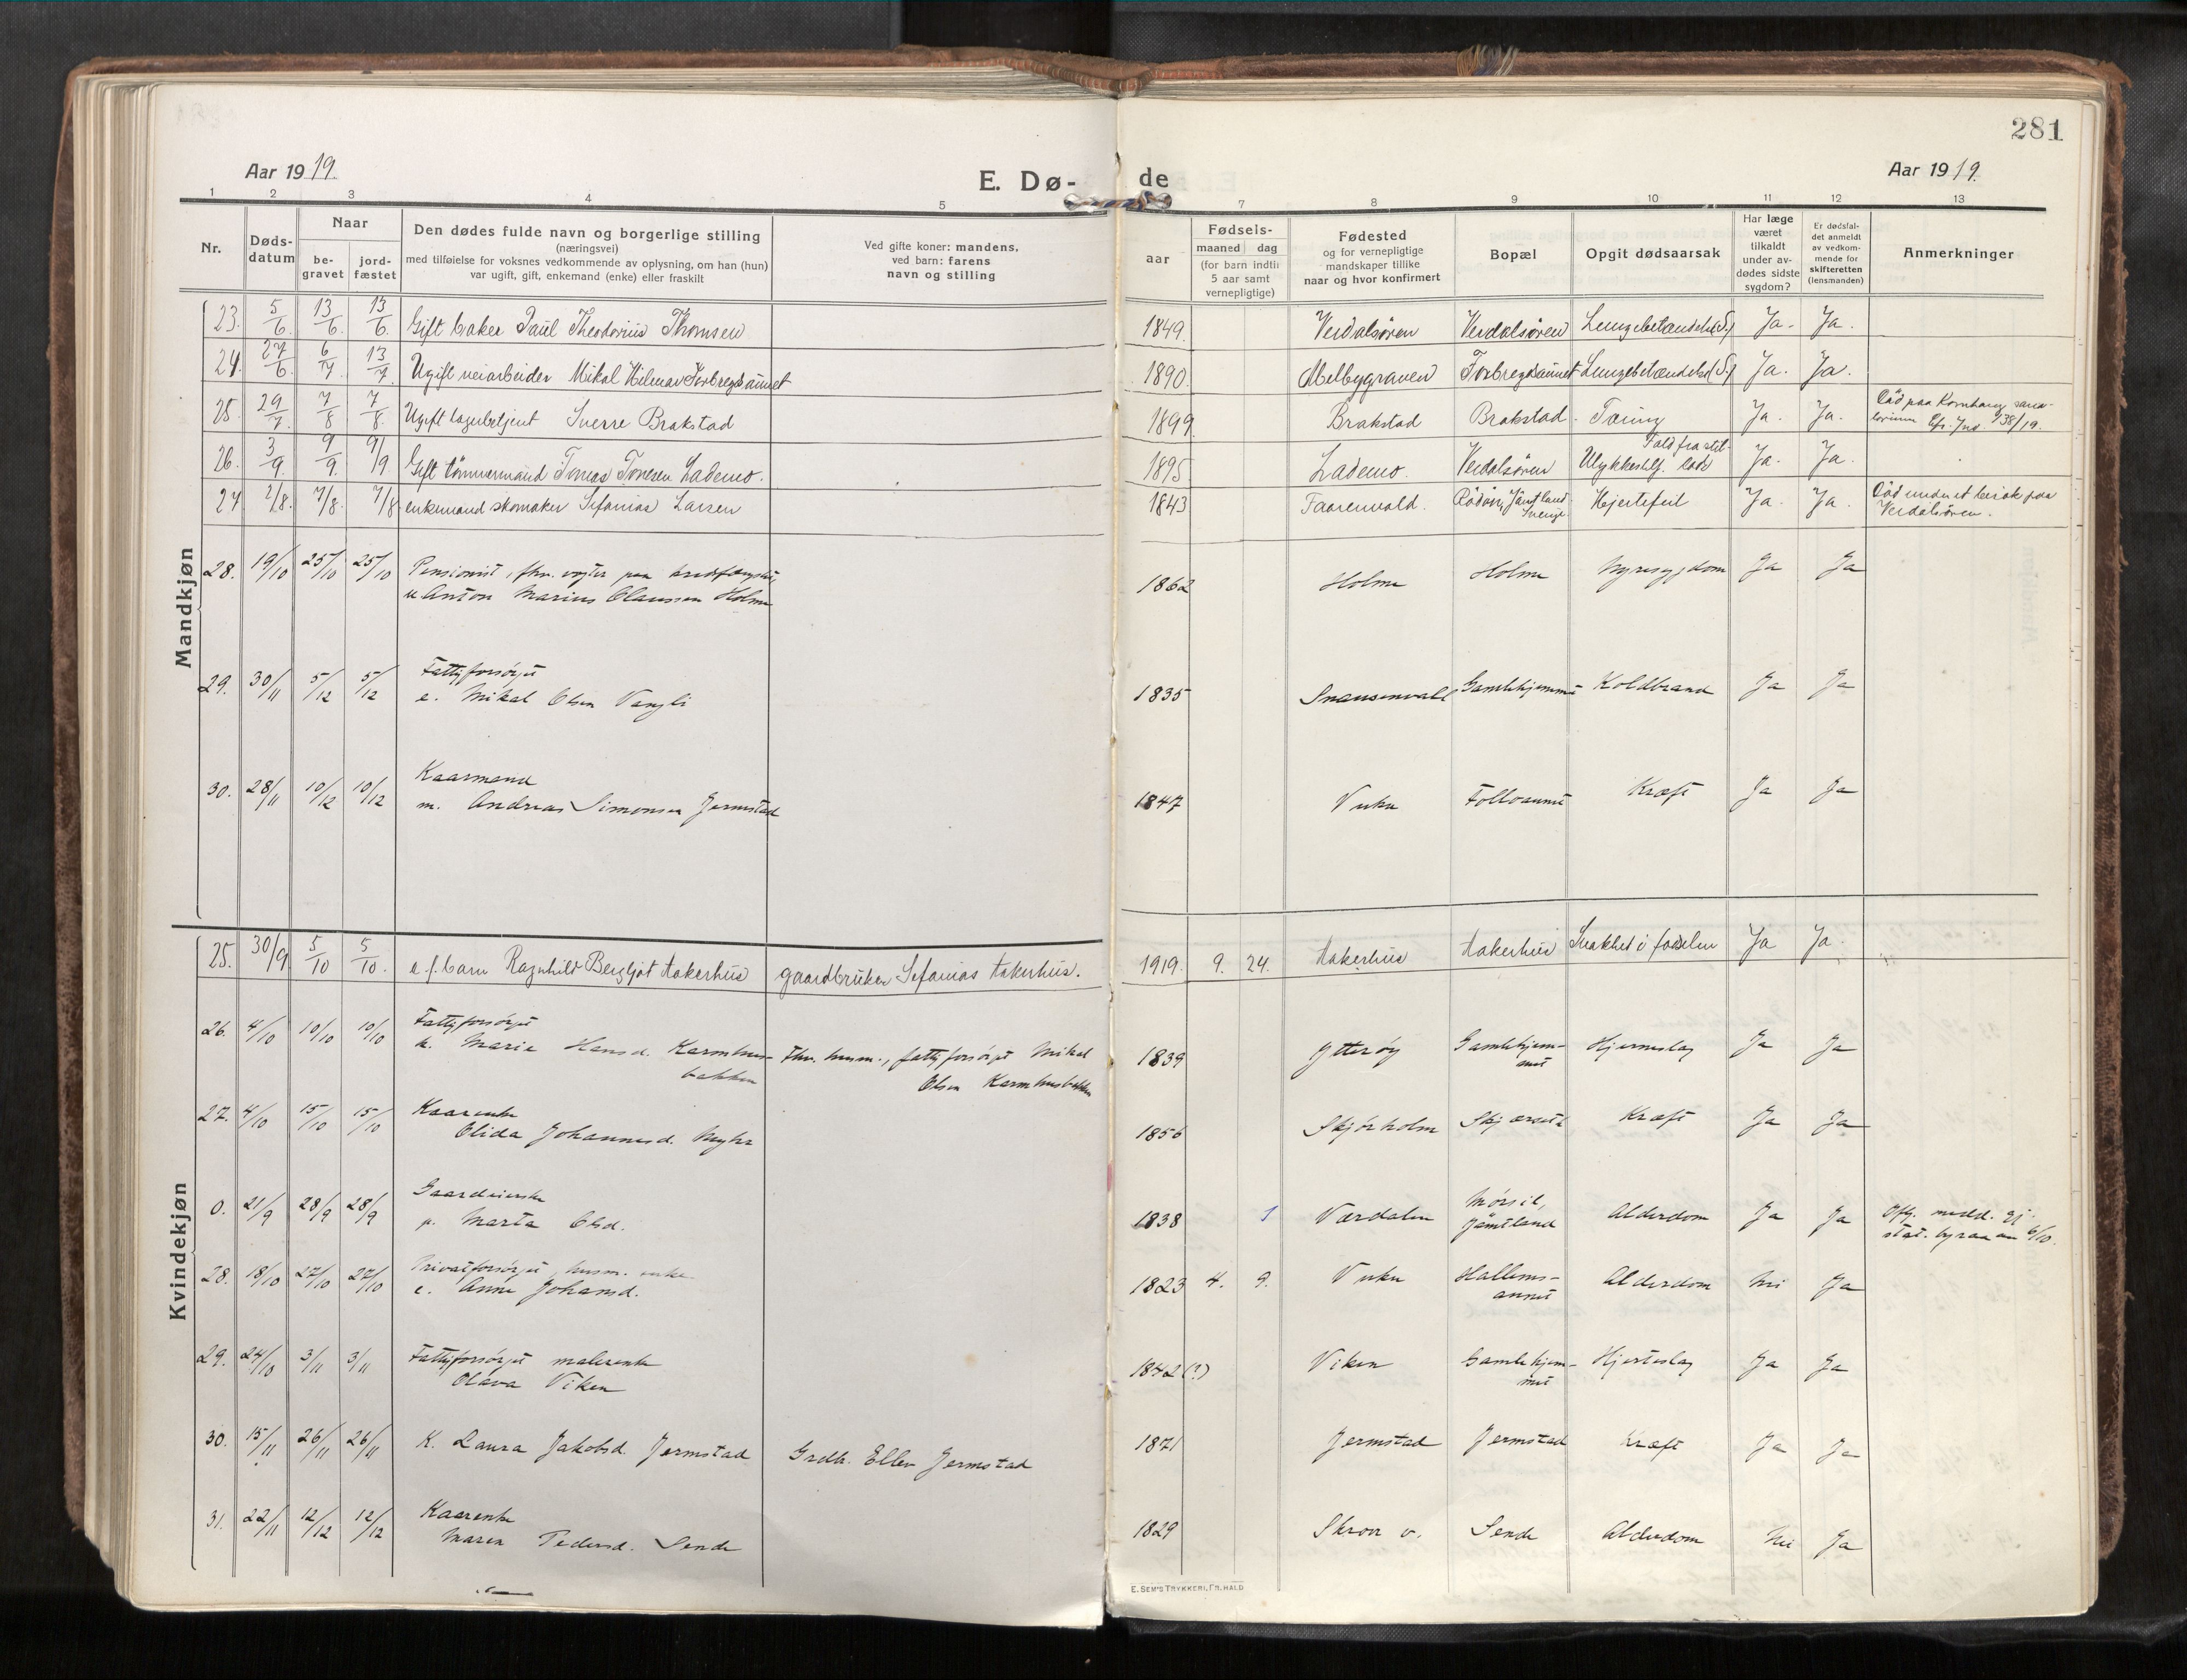 281
Aar 1919.
E. Dø-
de
Aar 1919.
1 2 3 4 5 7 8 9 10 11 12 13
Nr.
Døds-
datum
Naar
be-
gravet
jord-
fæstet
Den dødes fulde navn og borgerlige stilling
(næringsvei)
med tilføielse for voksnes vedkommende av oplysning, om han (hun)
var ugift, gift, enkemand (enke) eller fraskilt
Ved gifte koner: mandens,
ved barn: farens
navn og stilling
Fødsels-
aar
maaned dag
(for barn indtil
5 aar samt
vernepligtige)
Fødested
og for vernepligtige
mandskaper tillike
naar og hvor konfirmert
Bopæl
Opgit dødsaarsak
Har læge
været
tilkaldt
under av-
dødes sidste
sygdom?
Er dødsfal-
det anmeldt
av vedkom-
mende for
skifteretten
(lensmanden)
Anmerkninger
Mandkjøn
23. 5/6. 13/6. 13/6. Gift baker Paul Theodorius Thomsen 1849. Verdalsøren Verdalsøren Lungebetændelse(S.) Ja. Ja.
24. 27/6 6/7 13/7. Ugift veiarbeider Mikal Hilmar Forbregdsaunet 1890. Melbygraven Forbregdsaunet Lungebetændelse(S.) Ja. Ja.
25. 29/7. 7/8 7/8. Ugift lagerbetjent Sverre Brakstad 1899. Brakstad Brakstad. Tæring Ja. Ja. Død paa Kornhaug sana-
torium Cfr. Jns. 138/19.
26. 3/9. 9/9. 9/9 Gift tømmermand Tomas Tomesen Lademo. 1895 Lademo. Verdalsøren Ulykkestilf. Fald fra stil-
lads Ja. Ja.
27 2/8. 7/8. 7/8 enkemand skomaker Sefanias Larsen 1843 Faarenvald. Rödön, Jämtland
Sverige Hjertefeil Ja. Ja. Død under et besøk paa
Verdalsøren.
28. 19/10 25/10 25/10 Pensionist, fhv. vogter paa
u. Anton Marius Claussen Holme 1862 Holme Holme Nyresygdom Ja Ja
29. 30/11 5/12 5/12 Fattigforsørget
e. Mikal Olsen Vangli 1835 Snausenvald Gamlehjemmet Koldbrand Ja Ja
30. 28/11 10/12 10/12 Kaarmand
m. Andreas Simonsen Jermstad 1847 Vuku Folloaunet Kræft Ja Ja
Kvindekjøn
25. 30/9 5/10 5/10. e.f. barn Ragnhild Bergljot Aakerhus gaardbruker Sefanias Aakerhus. 1919. 9. 24. Aakerhus Aakerhus Svakhet i fødselen Ja Ja.
26. 4/10 10/10 10/10 Fattigforsørget
k. Marie Hansd. Karmhus-
bakken Fhv. husm., fattigforsørget Mikal
Olsen Karmhusbakken 1839 Ytterøy Gamlehjem-
met Hjerneslag Ja Ja
27. 4/10 15/10 15/10 Kaarenke
Olida Johannesd. Myhr 1856 Skjørholm Skjærset Kræft Ja Ja
0. 21/9 28/9 28/9 Gaardeierske
p. Marta Olsd. 1838 1 Værdalen Mörsil,
Jämtland Alderdom Ja Ja Opg. medd. gj.
stat. byraa av 6/10.
28. 18/10 27/10 27/10 Privatforsørget, husm. enke
e. Anne Johansd. 1823 4. 9. Vuku Hallems-
aunet Alderdom Nei Ja
29. 24/10 3/11 3/11 Fattigforsørget malerenke
Olava Viken 1842 (?) Viken Gamlehjem-
met Hjerteslag Ja Ja
30. 15/11 26/11 26/11 K. Laura Jakobsd. Jermstad Grdb. Ellev Jermstad 1871 Jermstad Jermstad Kræft Ja Ja
31. 22/11 12/12 12/12 Kaarenke
Maren Pedersd. Sende 1829 Skrov v. Sende Alderdom Nei Ja
E. SEM'S TRYKKERI, FR. HALD